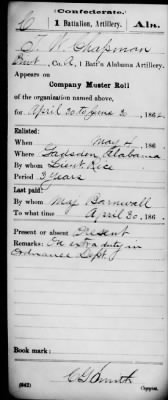 Confederate.
C 1 Battalion, Artillery. Ala.
T. W. Chapman
Pvt, Co. A, 1 Batt'n Alabama Artillery.
Appears on
Company Muster Roll
of the organization named above,
for April 30 to June 30, 186
Enlisted:
When May 4, 186
Where Gadsden, Alabama
By whom Lieut Rice
Period 3 Years
Last paid:
By whom Maj Barnwall
To what time April 30, 186
Present or absent Present
Remarks: On extra duty in
Ordnance Dept.
Book mark:
(642) Copyist.